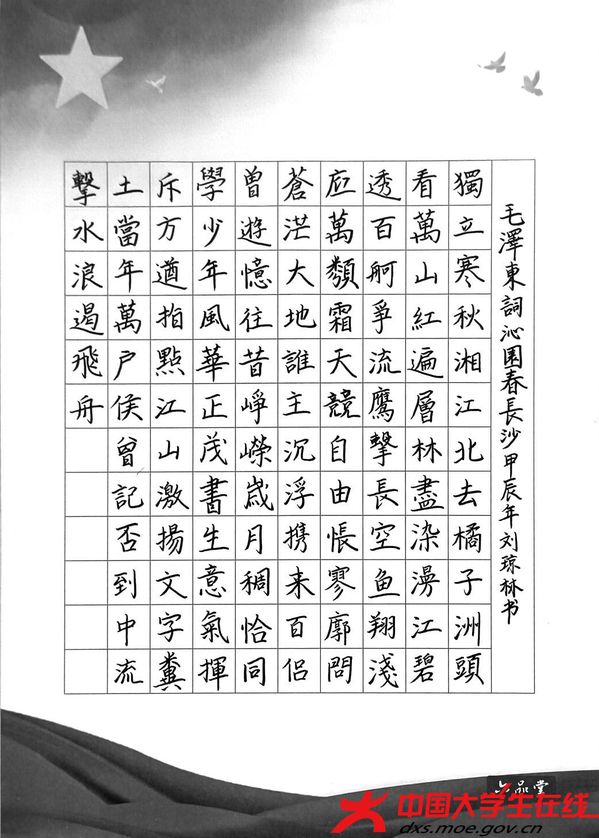 毛澤東詞沁園春長沙甲辰年刘琼林书
獨立寒秋湘江北去橘子洲頭
看萬山紅遍層林盡染漫江碧
透百舸爭流鷹擊長空鱼翔淺
底萬類霜天競自由悵寥廓問
蒼茫大地誰主沉浮携来百侣
曾遊憶往昔崢嶸歲月稠恰同
學少年風華正茂書生意氣揮
斥方遒指點江山激揚文字糞
土當年萬户侯曾記否到中流
擊水浪遏飛舟
六品堂
中国大学生在线
dxs.moe.gov.cn